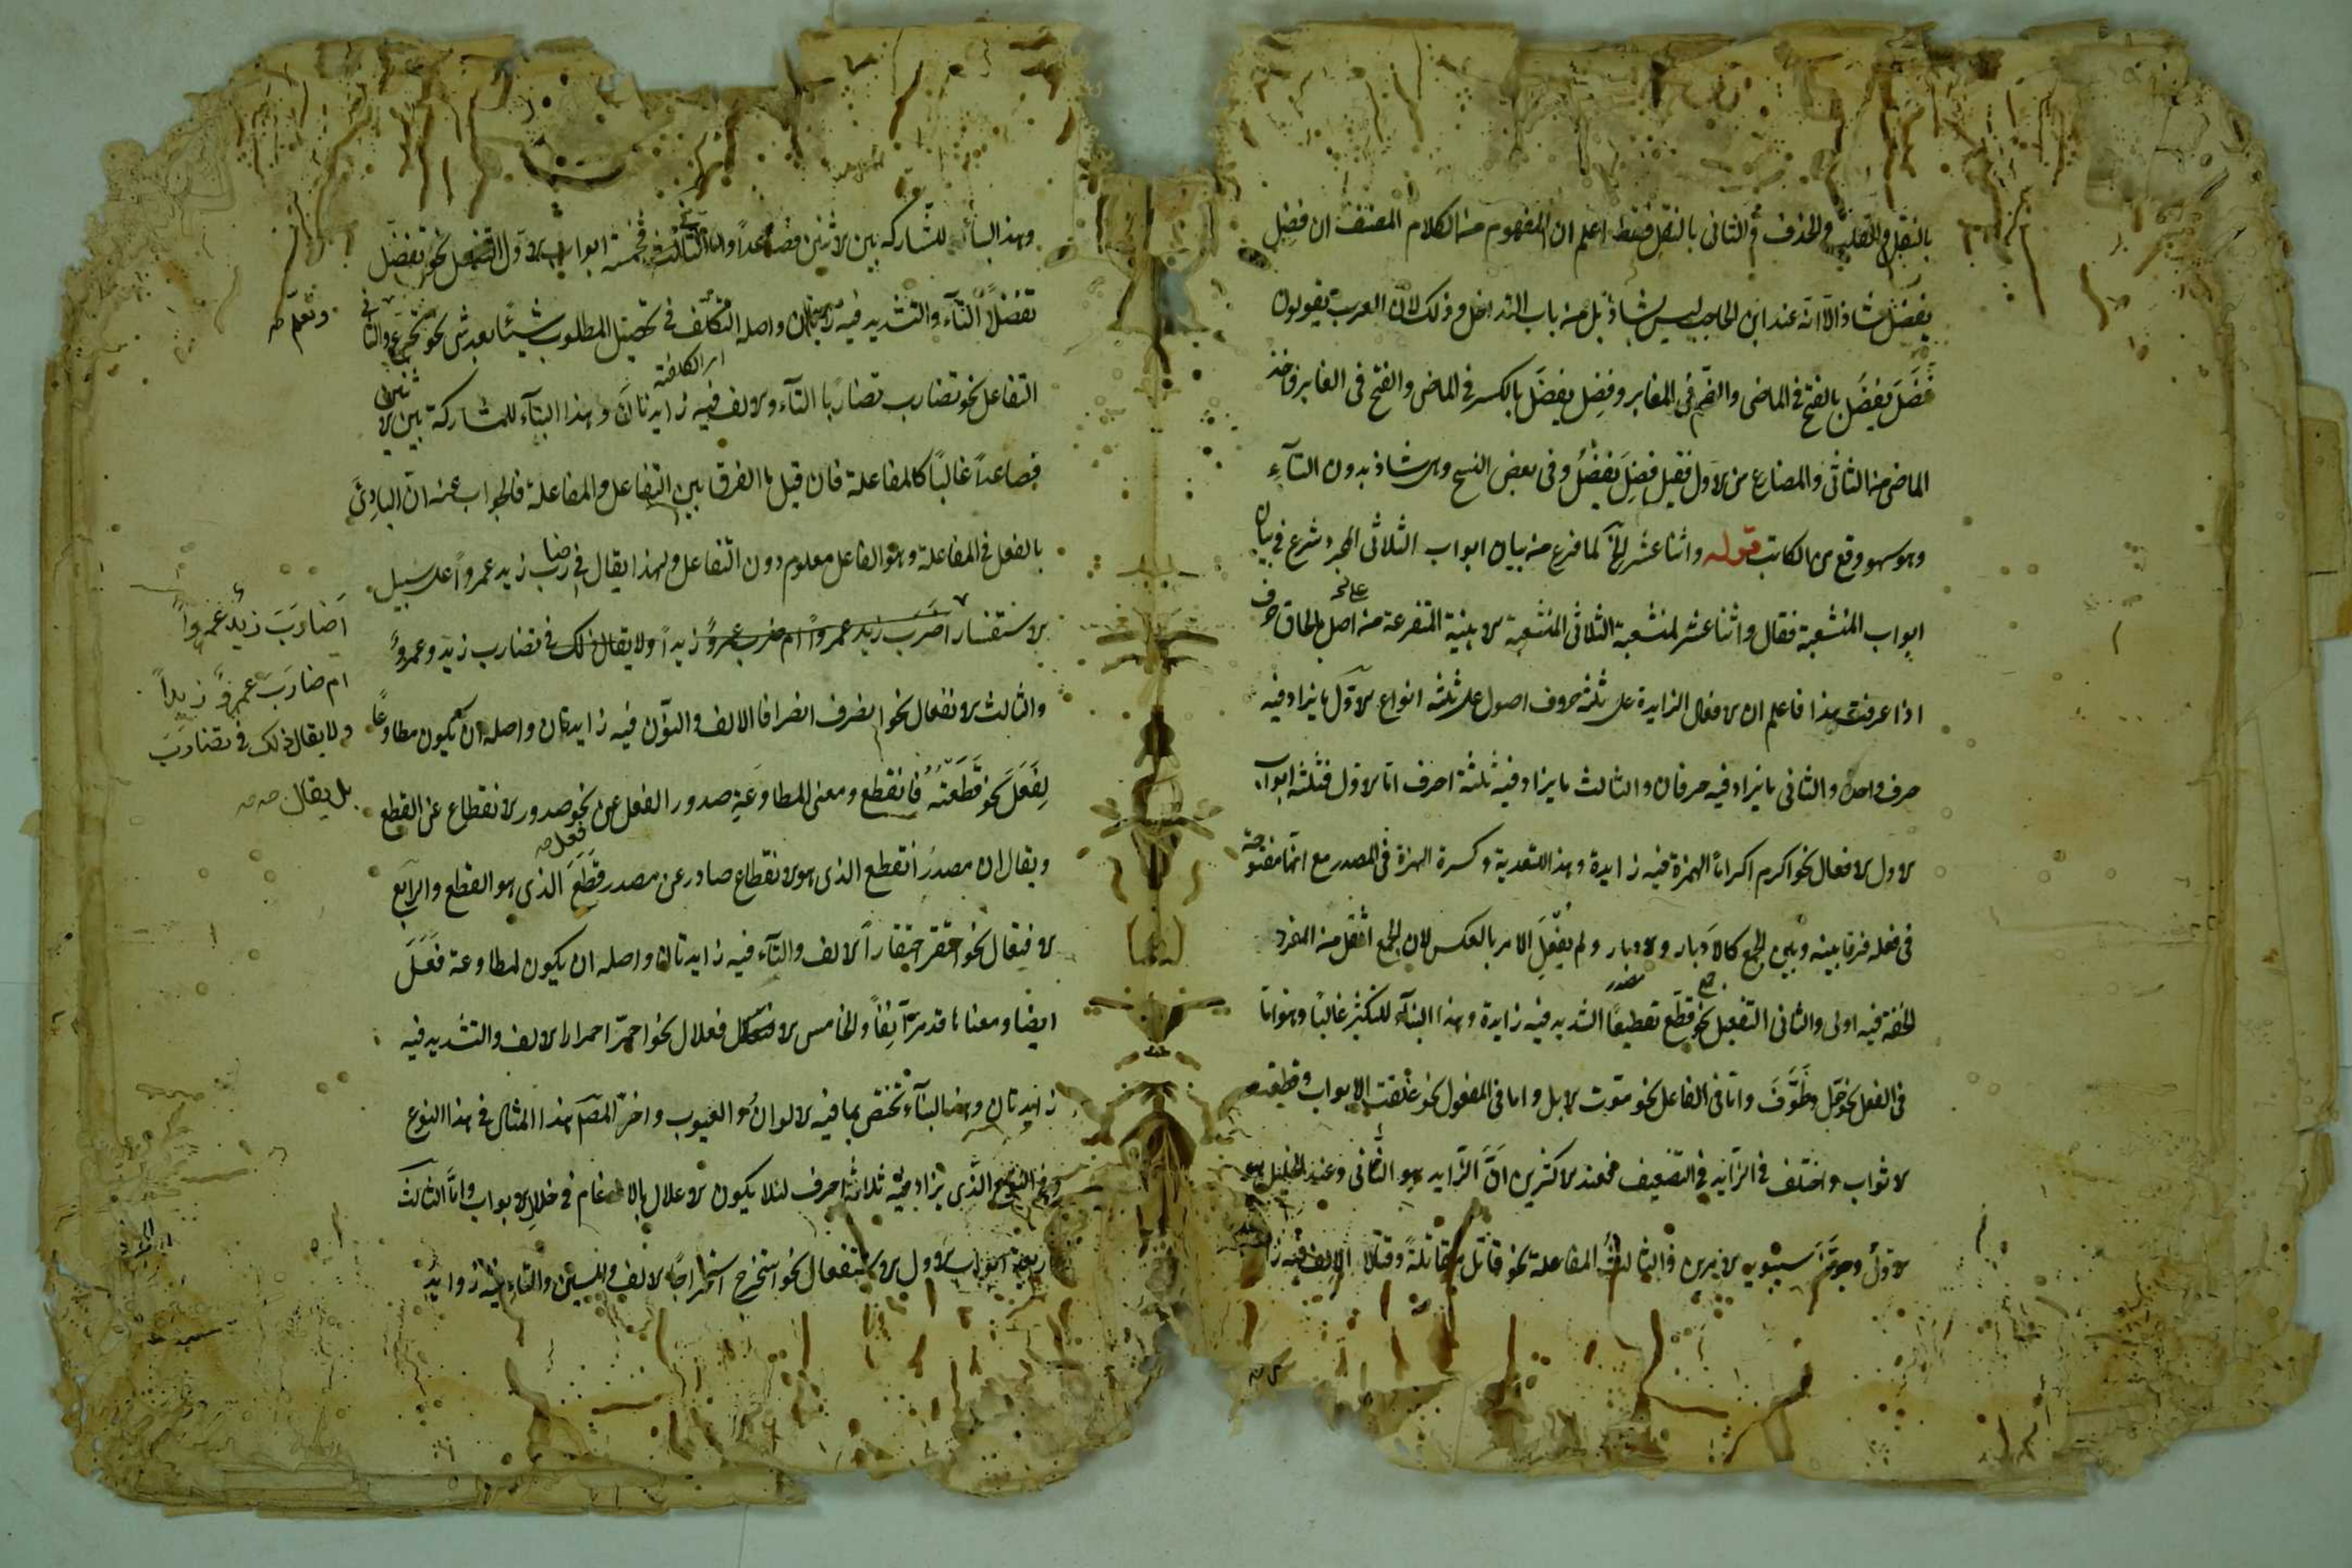 بالنقل والقلب والحذف و الثانى بالنقل فقط اعلم ان المفهوم من الكلام المصنف ان فضِل
يفضُل شاذ الا انه عند ابن الحاجب ليس بشاذ بل من باب التداخل و ذلك لان العرب يقولون
فَضَلَ يَفضُل بالفتح فى الماضى والضم فى الغابر و فضِل يفضَل بالكسر فى الماضى والفتح فى الغابر فاخذ
الماضى من الثانى والمضارع من الاول فقيل فضِلَ يَفضُلُ و فى بعض النسخ وهى شاذ بدون التآء
وهو سهو وقع من الكاتب قوله واثنا عشر الخ لما فرغ من بيان ابواب الثلاثى المجرد شرع فى بيان
ابواب المنشعبة فقال و اثنا عشر لمنشعبة الثلاثى المنشعبة الابنية المتفرعة من اصل بالحاق حرف
اذا عرفت هذا فاعلم ان الافعال الزايدة على ثلثة حروف اصول على ثلثة انواع الاول ما يزاد فيه
حرف واحد والثانى ما يزاد فيه حرفان والثالث ما يزاد فيه ثلثة احرف اما الاول فثلثة ابواب
الاول الافعال نحو اكرم اكراما الهمزة فيه زايدة و هذا للتعدية و كسرة الهمزة فى المصدر مع انها مفتوحة
فى فعله فرقا بينه وبين الجمع كالاَدبار والادبار و لم يفعل الامر بالعكس لان الجمع اثقل من المفرد
الخفة فيه اولى والثانى التفعيل نحو قطّع تقطيعًا التشديد فيه زايدة و هذا البنآء للتكثير غالبًا و هو اما
فى الفعل نحو جوّل و طَوَّفَ و اما فى الفاعل نحو موّت الابل و اما فى المفعول نحو غلّقت الابواب و قطّعت
الاثواب و اختلف فى الزايد فى التضعيف فعند الاكثرين انّ الزايد هو الثانى و عند الخليل هو
الاول و جوّز سيبويه الامرين و الثالث المفاعلة نحو قاتل مقاتلةً و قتالا الالف فيه
و هذا البناء للمشاركة بين الاثنين فصاعداً و اما الثانى فخمسة ابواب الاول التفعل نحو تفضّل
تفضّلاً التآء والتشديد فيه زايدتان و اصله التكلف فى تحصيل المطلوب شيئًا بعد شئ نحو تجرّع والثانى
التفاعل نحو تضارب تضاربًا التآء والالف فيه زايدتان و هذا البنآء للمشاركة بين الاثنين
فصاعداً غالباً كالمفاعلة فان قيل ما الفرق بين التفاعل والمفاعلة فالجواب عنه ان البادِئ
بالفعل فى المفاعلة و هو الفاعل معلوم دون التفاعل ولهذا يقال فى ضارب زيد عمرواً على سبيل
الاستفسار اضرب زيد عمرواً ام ضرب عمروٌ زيداً ولا يقال ذلك فى تضارب زيد و عمروٌ
والثالث الانفعال نحو انصرف انصرافا الالف والنون فيه زايدتان و اصله ان يكون مطاوعًا
لِفَعَلَ نحو قَطَعتُهُ فانقطع و معنى المطاوعة صدور الفعل عن نحو صدور الانقطاع عن القطع
و يقال ان مصدر انقطع الذى هو الانقطاع صادر عن مصدر قَطَعَ الذى هو القطع والرابع
الافتعال نحو احتقر احتقاراً الالف والتآء فيه زايدتان و اصله ان يكون لمطاوعة فَعَلَ
ايضًا و معناه ما قد مرّ آنفاً والخامس افعلال نحو احمرّ احمرارا الالف والتشديد فيه
زايدتان و هذا البنآء تختص بما فيه الالوان و العيوب و اخر المصّ هذا المثال فى هذا النوع
الذى يزاد فيه ثلاثة احرف لئلا يكون الاعلال بالادغام فى خلال الابواب و اما الثالث
اربعة ابواب الاول الاستفعال نحو استخرج استخراجًا الالف والسين والتاء فيه زوايد
و تعلّم
اَضارَبَ زيدٌ عمرواً
ام ضارَبَ عمروٌ زيداً
ولا يقال ذلك فى تضارَبَ
بل يقال